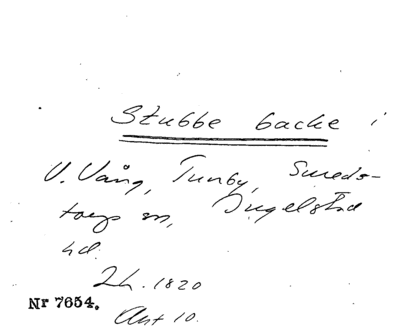 Stubbe backe i
V. Vång, Tunby, Smeds-
torps sn, Ingelstad
hd.
Lh. 1820
Nr 7654.
Akt 10.